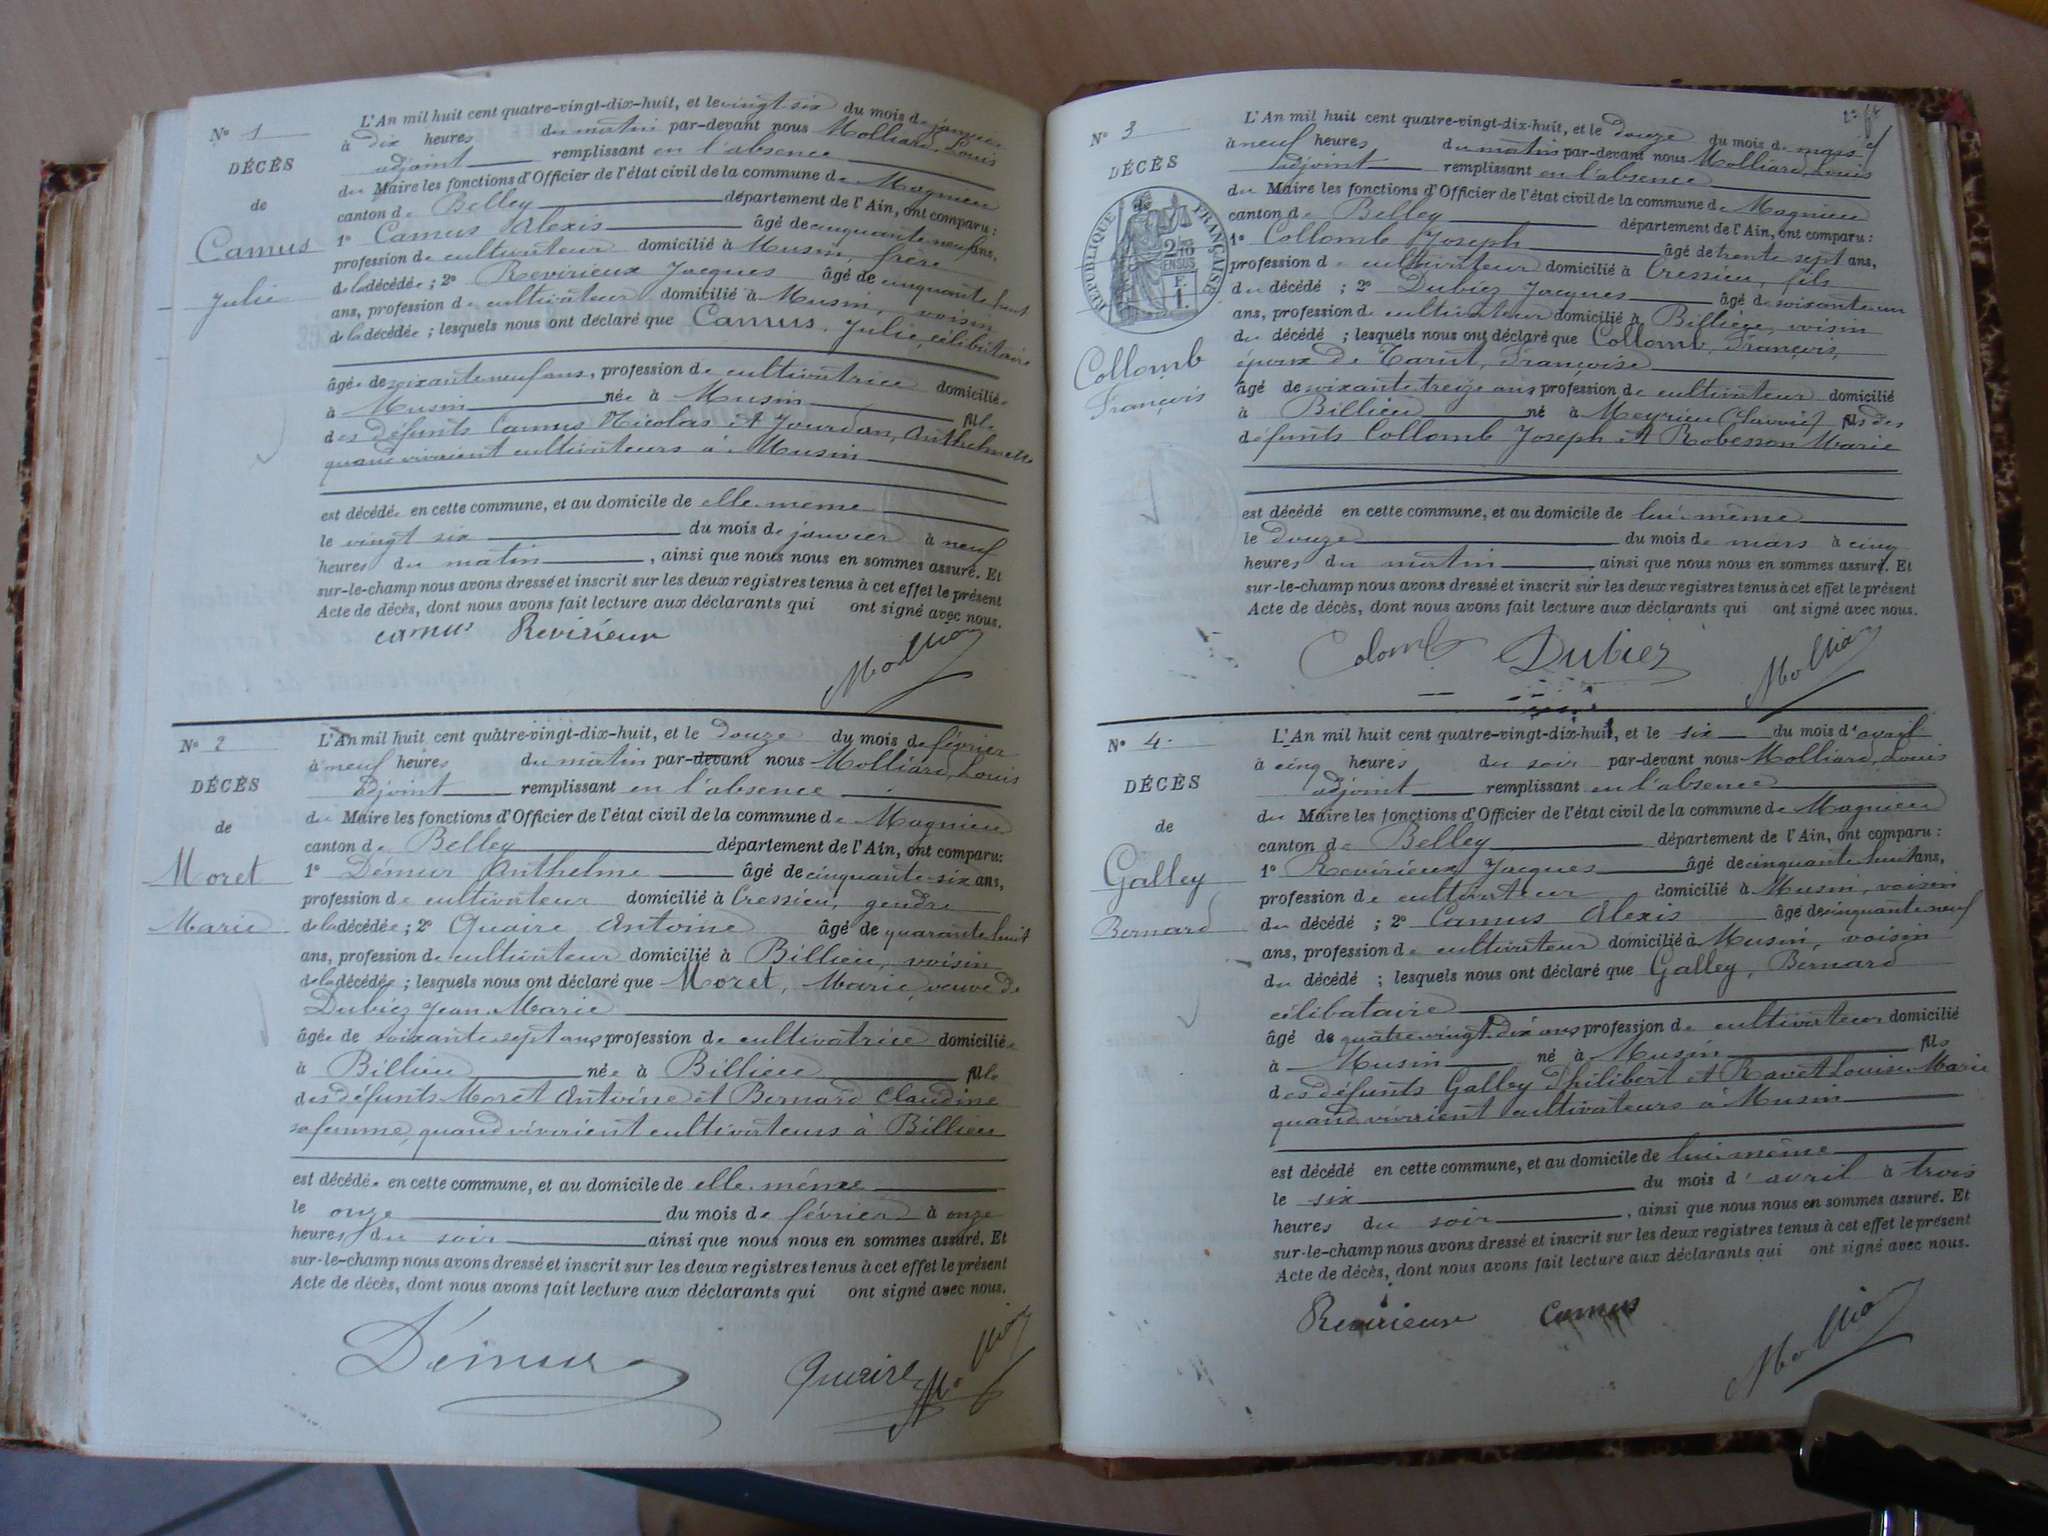 N° 1
DÉCÈS
de
Camus
Julie
L'An mil huit cent quatre-vingt-dix-huit, et le vingt six du mois de janvier
à dix heures du matin par-devant nous Molliard, Louis
adjoint remplissant en l'absence
du Maire les fonctions d'Officier de l'état civil de la commune de Magnieu
canton de Belley département de l'Ain, ont comparu :
1° Camus Alexis âgé de cinquante neuf ans,
profession de cultivateur domicilié à Musin, frère
de la décédée ; 2° Revirieux Jacques âgé de cinquante huit
ans, profession de cultivateur domicilié à Musin, voisin
de la décédée ; lesquels nous ont déclaré que Camus, Julie, célibataire
âgée de soixante neuf ans, profession de cultivatrice domiciliée
à Musin née à Musin fille
des défunts Camus Nicolas et Jourdan, Anthelmette
quand vivaient cultivateurs à Musin
est décédée en cette commune, et au domicile de elle même
le vingt six du mois de janvier à neuf
heures du matin, ainsi que nous nous en sommes assuré. Et
sur-le-champ nous avons dressé et inscrit sur les deux registres tenus à cet effet le présent
Acte de décès, dont nous avons fait lecture aux déclarants qui ont signé avec nous.
camus Revirieux
Molliard
N° 2
DÉCÈS
de
Moret
Marie
L'An mil huit cent quatre-vingt-dix-huit, et le douze du mois de février
à neuf heures du matin par-devant nous Molliard, Louis
adjoint remplissant en l'absence
du Maire les fonctions d'Officier de l'état civil de la commune de Magnieu
canton de Belley département de l'Ain, ont comparu:
1° Démeur Anthelme âgé de cinquante-six ans,
profession de cultivateur domicilié à Cressieu, gendre
de la décédée ; 2° Quaire Antoine âgé de quarante huit
ans, profession de cultivateur domicilié à Billieu, voisin
de la décédée ; lesquels nous ont déclaré que Moret, Marie, veuve de
Dubiez Jean Marie
âgée de soixante sept ans profession de cultivatrice domiciliée
à Billieu née à Billieu fille
des défunts Moret Antoine et Bernard Claudine
sa femme, quand vivaient cultivateurs à Billieu
est décédée en cette commune, et au domicile de elle même
le onze du mois de février à onze
heures du soir ainsi que nous nous en sommes assuré. Et
sur-le-champ nous avons dressé et inscrit sur les deux registres tenus à cet effet le présent
Acte de décès, dont nous avons fait lecture aux déclarants qui ont signé avec nous.
Démeur Quaire Molliard
N° 3
DÉCÈS
RÉPUBLIQUE FRANÇAISE
2/10 EN SUS
1 F.
Collomb
François
L'An mil huit cent quatre-vingt-dix-huit, et le douze du mois de mars
à neuf heures du matin par-devant nous Molliard, Louis
adjoint remplissant en l'absence
du Maire les fonctions d'Officier de l'état civil de la commune de Magnieu
canton de Belley département de l'Ain, ont comparu :
1° Collomb Joseph âgé de trente sept ans,
profession de cultivateur domicilié à Cressieu, fils
du décédé ; 2° Dubiez Jacques âgé de soixante un
ans, profession de cultivateur domicilié à Billieu, voisin
du décédé ; lesquels nous ont déclaré que Collomb, François,
époux de Carut, Françoise
âgé de soixante treize ans profession de cultivateur domicilié
à Billieu né à Meyrieu (Savoie) fils des
défunts Collomb Joseph et Robesson Marie
est décédé en cette commune, et au domicile de lui-même
le douze du mois de mars à cinq
heures du matin ainsi que nous nous en sommes assuré. Et
sur-le-champ nous avons dressé et inscrit sur les deux registres tenus à cet effet le présent
Acte de décès, dont nous avons fait lecture aux déclarants qui ont signé avec nous.
Colomb Dubiez Molliard
N° 4.
DÉCÈS
de
Galley
Bernard
L'An mil huit cent quatre-vingt-dix-huit, et le six du mois d'avril
à cinq heures du soir par-devant nous Molliard, Louis
adjoint remplissant en l'absence
du Maire les fonctions d'Officier de l'état civil de la commune de Magnieu
canton de Belley département de l'Ain, ont comparu :
1° Revirieux Jacques âgé de cinquante huit ans,
profession de cultivateur domicilié à Musin, voisin
du décédé ; 2° Camus Alexis âgé de cinquante neuf
ans, profession de cultivateur domicilié à Musin, voisin
du décédé ; lesquels nous ont déclaré que Galley, Bernard
célibataire
âgé de quatre vingt dix ans profession de cultivateur domicilié
à Musin né à Musin fils
des défunts Galley Philibert et Ravet Louise Marie
quand vivaient cultivateurs à Musin
est décédé en cette commune, et au domicile de lui-même
le six du mois d'avril à trois
heures du soir, ainsi que nous nous en sommes assuré. Et
sur-le-champ nous avons dressé et inscrit sur les deux registres tenus à cet effet le présent
Acte de décès, dont nous avons fait lecture aux déclarants qui ont signé avec nous.
Revirieux camus
Molliard